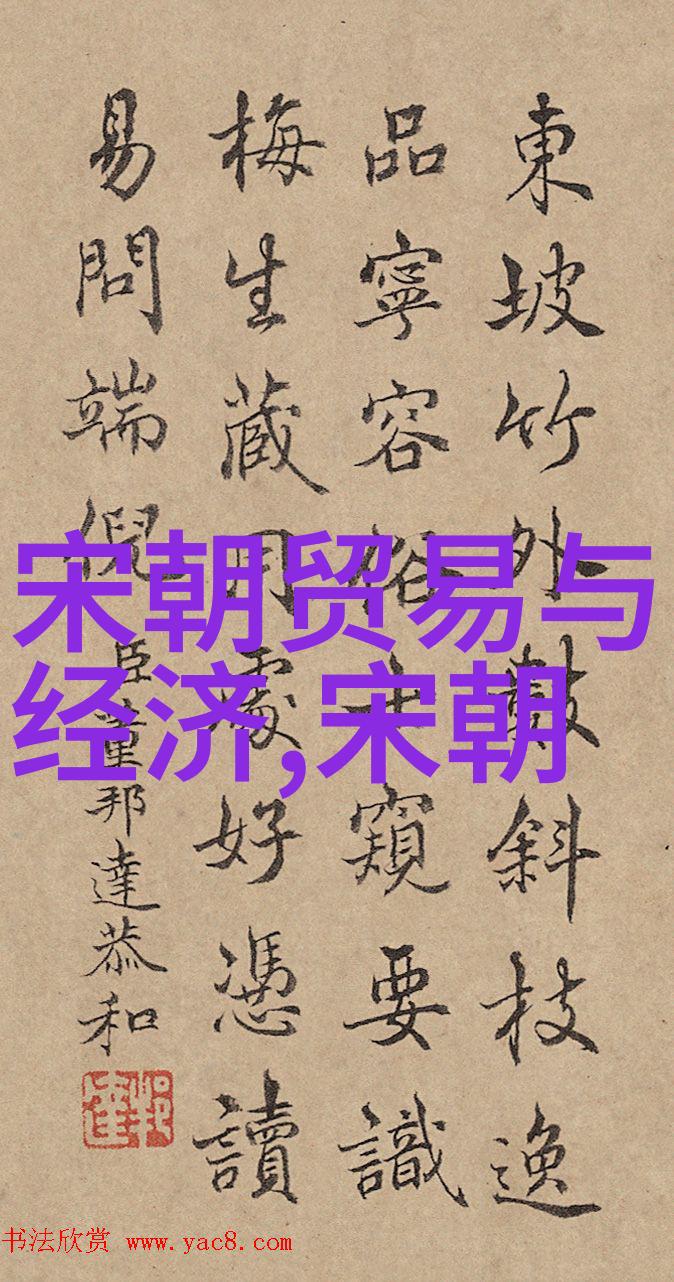 東坡竹外斜枝逸
品寧容俗窺要識
梅生蔵用處好憑讀
易問端倪
臣董邦達恭和
宋朝贸易与
经济,宋朝
书法欣赏 www.yac8.com